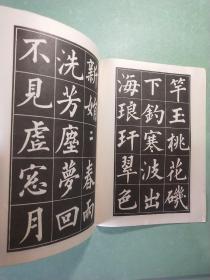 竿王桃花磯
下釣寒波出
海琅玕翠色
新娟〻春雨
洗芳塵夢回
不見虛窓月